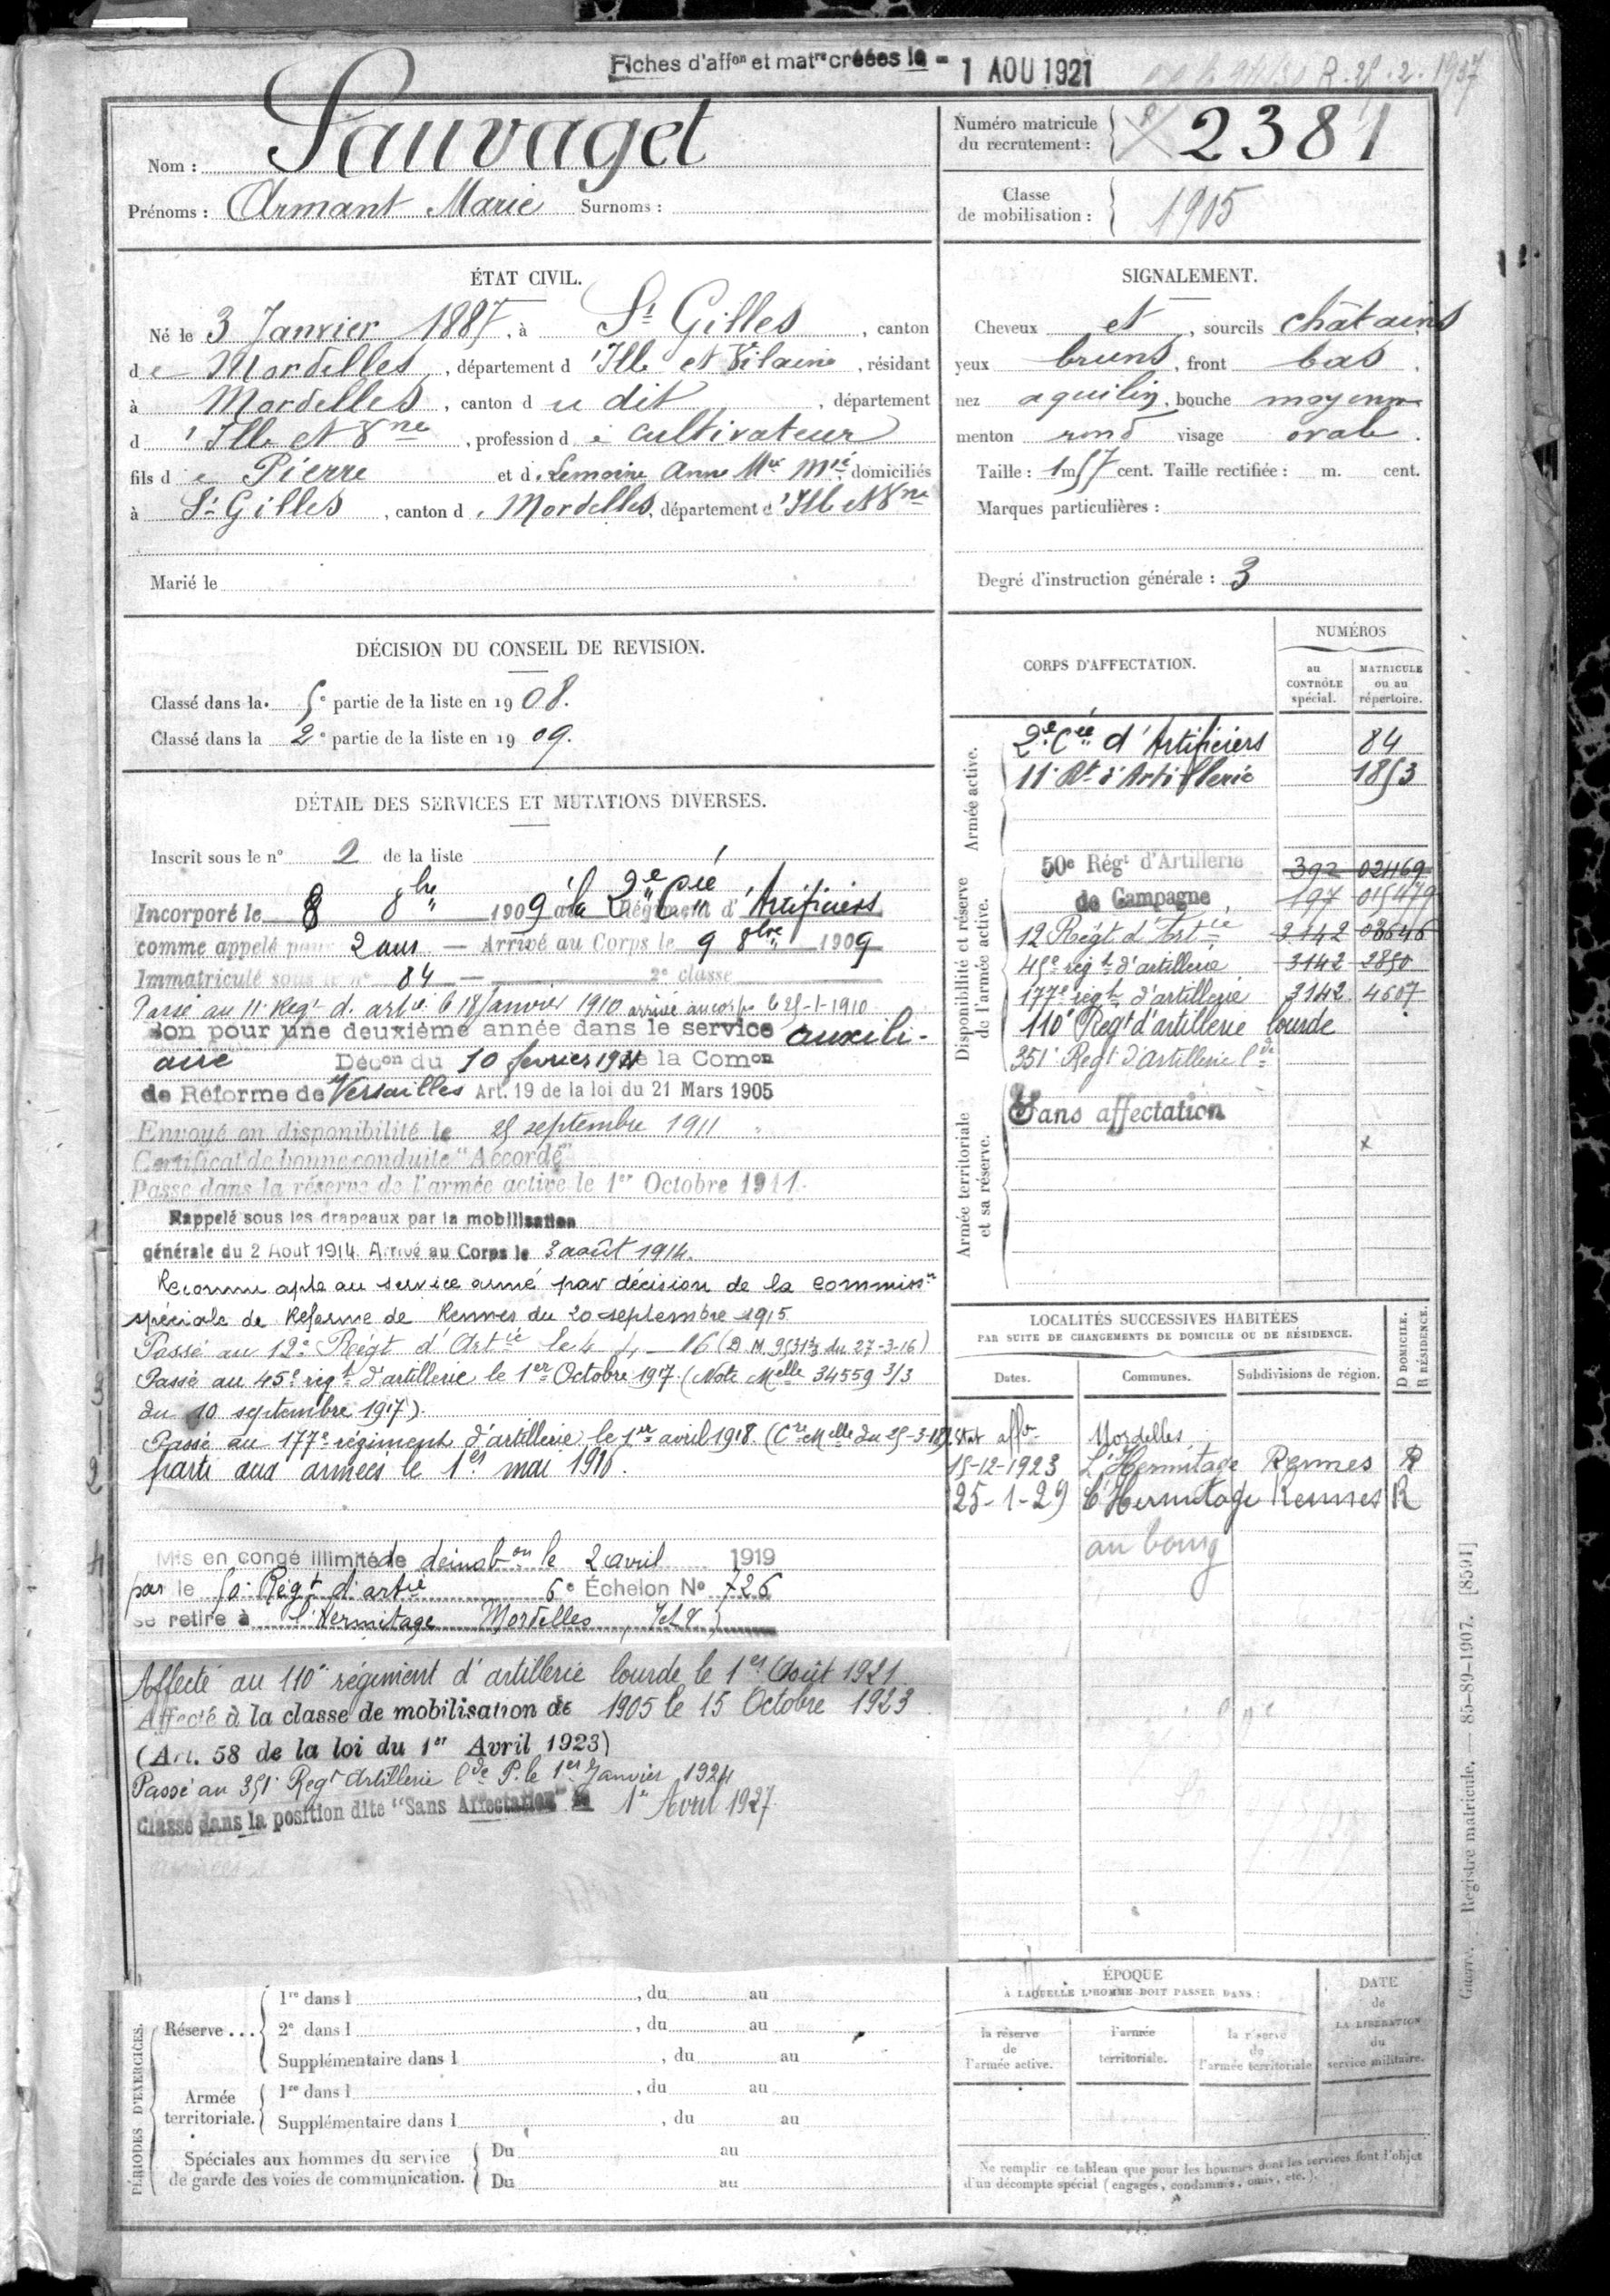 Fiches d'affon et matre créées le - 1 AOU 1921
R. 25.2.1937
Nom : Sauvaget
Prénoms : Armant Marie Surnoms :
Numéro matricule
du recrutement : 2381
Classe
de mobilisation : 1905
ÉTAT CIVIL.
Né le 3 Janvier 1887, à St Gilles, canton
de Mordelles, département d'Ille et Vilaine, résidant
à Mordelles, canton du dit, département
d'Ille et Vne, profession de cultivateur
fils de Pierre et d. Lemoine Anne Mie Mie domiciliés
à St Gilles, canton d. Mordelles, département d'Ille et Vne
Marié le
SIGNALEMENT.
Cheveux et, sourcils châtains
yeux bruns, front bas.
nez aquilin, bouche moyenne
menton rond visage ovale.
Taille : 1m 57 cent. Taille rectifiée : m. cent.
Marques particulières :
Degré d'instruction générale : 3
DÉCISION DU CONSEIL DE REVISION.
Classé dans la 5e partie de la liste en 1908.
Classé dans la 2e partie de la liste en 1909.
DÉTAIL DES SERVICES ET MUTATIONS DIVERSES.
Inscrit sous le n° 2 de la liste
Incorporé le 8 8bre 1909 à la 2e Cie Régiment d'Artificiers
comme appelé pour 2 ans — Arrivé au Corps le 9 8bre 1909
Immatriculé sous le n° 84 — 2e classe
Passé au 11e Regt d. artie le 18 Janvier 1910 arrivé au corps le 25-1-1910
bon pour une deuxième année dans le service auxili-
aire Décon du 10 février 1911 de la Comon
de Réforme de Versailles Art. 19 de la loi du 21 Mars 1905
Envoyé en disponibilité le 25 septembre 1911
Certificat de bonne conduite "Accordé"
Passé dans la réserve de l'armée active le 1er Octobre 1911.
Rappelé sous les drapeaux par la mobilisation
générale du 2 Août 1914. Arrivé au Corps le 3 août 1914.
Reconnu apte au service armé par décision de la commisson
spéciale de Reforme de Rennes du 20 septembre 1915
Passé au 12e Regt d'Artie le 4-4-16 (D. M. 9531 3/3 du 27-3-16)
Passé au 45e régt d'artillerie le 1er Octobre 1917 (Note Melle 34559 3/3
du 10 septembre 1917).
Passé au 177e régiment d'artillerie le 1er avril 1918. (Cre Melle du 25-3-18).
parti aux armées le 1er mai 1916.
Mis en congé illimité de démobon le 2 avril 1919
par le 50e Régt d'artie 6e Échelon No 726
se retire à l'Hermitage Mordelles, I et V
Affecté au 110e régiment d'artillerie lourde le 1er Août 1921.
Affecté à la classe de mobilisation de 1905 le 15 Octobre 1923
(Art. 58 de la loi du 1er Avril 1923)
Passé au 351e Regt Artillerie lde P. le 1er Janvier 1924
Classé dans la position dite "Sans Affectation" le 1er Avril 1927.
CORPS D'AFFECTATION.
NUMÉROS
au CONTRÔLE spécial.
MATRICULE ou au répertoire.
Armée active.
2e Cie d'Artificiers 84
11e Rt d'Artillerie 1853
Disponibilité et réserve de l'armée active.
50e Régt d'Artillerie 392 02469
de Campagne 197 015479
12 Régt d'Artie 3142 08646
45e régt d'artillerie 3142 2850
177e régt d'artillerie 3142 4607
110e Regt d'artillerie lourde
351e Regt d'Artillerie lde
Armée territoriale et sa réserve.
Sans affectation
LOCALITÉS SUCCESSIVES HABITÉES
PAR SUITE DE CHANGEMENTS DE DOMICILE OU DE RÉSIDENCE.
Dates. Communes. Subdivisions de région. D DOMICILE. R RÉSIDENCE.
Mordelles
15-12-1923 L'Hermitage Rennes R
25-1-29 L'Hermitage Rennes R
au bourg
PÉRIODES D'EXERCICES.
Réserve...
1re dans l , du au
2e dans l , du au
Supplémentaire dans l , du au
Armée territoriale.
1re dans l , du au
Supplémentaire dans l , du au
Spéciales aux hommes du service
de garde des voies de communication.
Du au
Du au
ÉPOQUE
À LAQUELLE L'HOMME DOIT PASSER DANS :
la réserve de l'armée active.
l'armée territoriale.
la réserve de l'armée territoriale
DATE de LA LIBÉRATION du service militaire.
Ne remplir ce tableau que pour les hommes dont les services font l'objet
d'un décompte spécial (engagés, condamnés, omis, etc.).
Guerre. Registre matricule. 85-89-1907. [8591]